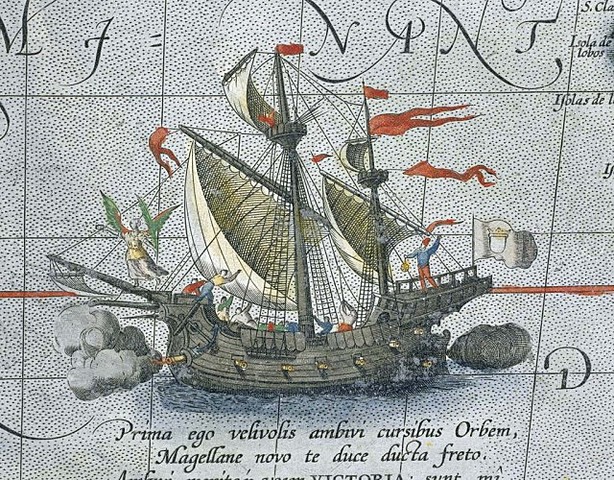 S. Cla
M I - N I N T,
Isola de
lobos
Isolas de l
D
Prima ego velivolis ambivi cursibus Orbem,
Magellane novo te duce ducta freto.
VICTORIA: sunt mi